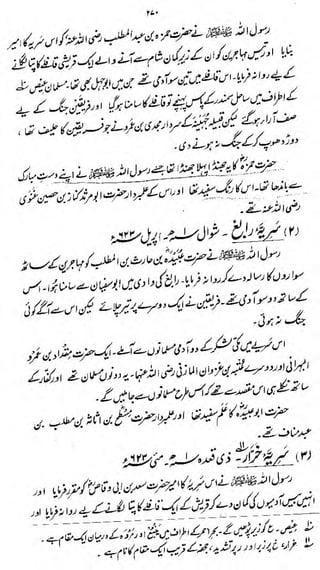 ۲۷۰
رسول اللہ ﷺ نے حضرت حمزہ بن عبدالمطلب رضی اللہ عنہ کو اس سریہ کا امیر
بنایا اور تیس مہاجرین کو ان کے زیر کمان شام سے آنے والے ایک قریشی قافلے کا پتا لگانے
کے لیے روانہ فرمایا۔ اس قافلے میں تین سو آدمی تھے جن میں ابوجہل بھی تھا۔ مسلمان عیص ۱؎
کے اطراف میں ساحل سمندر کے پاس پہنچے تو قافلے کا سامنا ہو گیا اور فریقین جنگ کے لیے
صف آرا ہو گئے لیکن قبیلہ جہینہ کے سردار مجدی بن عمرو نے جو فریقین کا حلیف تھا،
دوڑ دھوپ کر کے جنگ نہ ہونے دی۔
حضرت حمزہؓ کا یہ جھنڈا پہلا جھنڈا تھا جسے رسول اللہ ﷺ نے اپنے دست مبارک
سے باندھا تھا۔ اس کا رنگ سفید تھا اور اس کے علمبردار حضرت ابو مرثد کناز بن حصین غنوی
رضی اللہ عنہ تھے۔
(۲) سریۂ رابغ ۔ شوال ۱ھ۔ اپریل ۶۲۳ء
رسول اللہ ﷺ نے حضرت عبیدہؓ بن حارث بن المطلب کو مہاجرین کے ساٹھ
سواروں کا رسالہ دے کر روانہ فرمایا۔ رابغ کی وادی میں ابوسفیان سے سامنا ہوا۔ اس
کے ساتھ دو سو آدمی تھے۔ فریقین نے ایک دوسرے پر تیر چلائے لیکن اس سے آگے کوئی
جنگ نہ ہوئی۔
اس سریے میں مکی لشکر کے دو آدمی مسلمانوں سے آملے۔ ایک حضرت مقداد بن عمرو
البہرانی اور دوسرے عتبہ بن غزوان المازنی رضی اللہ عنہما۔ یہ دونوں مسلمان تھے اور کفار کے
ساتھ نکلے ہی اس مقصد سے تھے کہ اس طرح مسلمانوں سے جا ملیں گے۔
حضرت ابوعبیدہؓ کا علم سفید تھا اور علمبردار حضرت مسطح بن اثاثہ بن مطلب بن
عبد مناف تھے۔
(۳) سریۂ خرار ۲؎۔ ذی قعدہ ۱ھ۔ مئی ۶۲۳ء
رسول اللہ ﷺ نے اس سریہ کا امیر حضرت سعد بن ابی وقاصؓ کو مقرر فرمایا اور
انہیں بیس آدمیوں کی کمان دے کر قریش کے ایک قافلے کا پتا لگانے کے لیے روانہ فرمایا اور
۱؎ عیص۔ ع کو زیر پڑھیں گے۔ بحر احمر کے اطراف میں ینبع اور مروہ کے درمیان ایک مقام ہے۔
۲؎ خرار، خ پر زبر اور ر پر تشدید، جحفہ کے قریب ایک مقام کا نام ہے۔